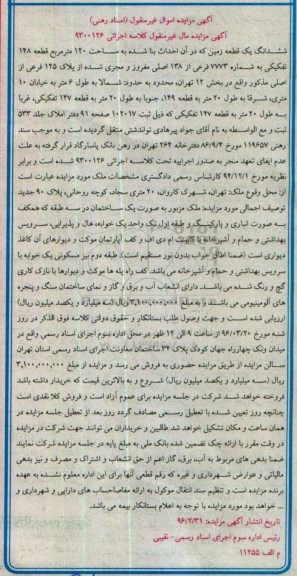 آگهی مزایده اموال غیرمنقول (اسناد رهنی)
آگهی مزایده مال غیرمنقول کلاسه اجرائی ۹۳۰۰۱۲۶
ششدانگ یک قطعه زمین که در آن احداث بنا شده به مساحت ۱۲۰ مترمربع قطعه ۱۴۸
تفکیکی به شماره ۷۷۷۳ فرعی از ۱۳۸ اصلی مفروز و مجزی شده از پلاک ۱۲۵ فرعی از
اصلی مذکور واقع در بخش ۱۲ تهران، محدود به حدود: شمالا به طول ۶ متر به خیابان ۱۰
متری، شرقا به طول ۲۰ متر به قطعه ۱۴۹، جنوبا به طول ۲۰ متر به قطعه ۱۴۷ تفکیکی، غربا
به طول ۲۰ متر به قطعه ۱۴۷ تفکیکی که ذیل ثبت ۱۰۲۰۱۷ صفحه ۹۱ دفتر املاک جلد ۵۳۳
ثبت و مع الواسطه به نام آقای جواد پیرهادی تواندشتی منتقل گردیده است و به موجب سند
رهنی ۱۱۹۶۵۷ مورخ ۸۶/۹/۴ دفترخانه ۲۶۴ تهران در رهن بانک پاسارگاد قرار گرفته به علت
عدم ایفای تعهد منجر به صدور اجراییه تحت کلاسه اجرائی ۹۳۰۰۱۲۶ شده است و برابر
نظریه مورخ ۹۴/۱۲/۱ کارشناس رسمی دادگستری مشخصات ملک مورد مزایده عبارت است
از: محل وقوع ملک: تهران، شهرک کاروان، ۲۰ متری سجاد، کوچه روحانی، پلاک ۹۰ جدید
توصیف اجمالی مورد مزایده: ملک مزبور به صورت یک ساختمان در سه طبقه که همکف
به صورت انباری و پارکینگ و طبقه اول تک واحد یک خوابه، هال و پذیرایی، سرویس
بهداشتی و حمام و آشپزخانه با کابینت ام دی اف و کف آپارتمان موکت و دیوارهای آن کاغذ
دیواری است (ضمنا اطاق خواب بدون نور مستقیم است). طبقه دوم نیز مسکونی یک خوابه با
سرویس بهداشتی و حمام و آشپزخانه می باشد. کف راه پله ها موکت و دیوارها با نازک کاری
گچ و رنگ شده می باشد. دارای انشعاب آب و برق و گاز و نمای ساختمان سنگ و پنجره
های آلومینیومی می باشند. که به مبلغ ۳,۱۰۰,۰۰۰,۰۰۰ ریال (سه میلیارد و یکصد میلیون ریال)
ارزیابی شده است و جهت وصول طلب بستانکار و حقوق دولتی کلاسه فوق الذکر در روز
شنبه مورخ ۹۶/۰۳/۲۰ از ساعت ۹ الی ۱۲ ظهر در محل اداره سوم اجرای اسناد رسمی واقع در
میدان ونک چهارراه جهان کودک پلاک ۳۴ ساختمان معاونت اجرای اسناد رسمی استان تهران
سالن مزایده از طریق مزایده حضوری به فروش می رسد و مزایده از مبلغ ۳,۱۰۰,۰۰۰,۰۰۰
ریال (سه میلیارد و یکصد میلیون ریال) شروع و به بالاترین قیمت که خریدار داشته باشد
فروخته خواهد شد. شرکت در جلسه مزایده برای عموم آزاد است و فروش کلا نقدی است
چنانچه روز تعیین شده با تعطیل رسمی مصادف گردد روز بعد از تعطیل جلسه مزایده در
همان ساعت و مکان تشکیل خواهد شد. طالبین و خریداران می توانند جهت شرکت در مزایده
در وقت مقرر با ارائه چک تضمین شده بانک ملی به مبلغ پایه در جلسه مزایده شرکت نمایند
ضمنا بدهی های مربوط به آب، برق، گاز اعم از حق انشعاب و اشتراک و مصرف و نیز بدهی
مالیاتی و عوارض شهرداری و غیره که رقم قطعی آنها برای این اداره معلوم نشده به عهده
برنده مزایده است و تنظیم سند انتقال موکول به ارائه مفاصاحساب های دارایی و شهرداری و
... خواهد بود مورد مزایده با توجه به اعلام بستانکار بیمه می باشد.
تاریخ انتشار آگهی مزایده: ۹۶/۲/۳۱
رئیس اداره سوم اجرای اسناد رسمی- نقیبی
م الف ۱۱۴۵۵